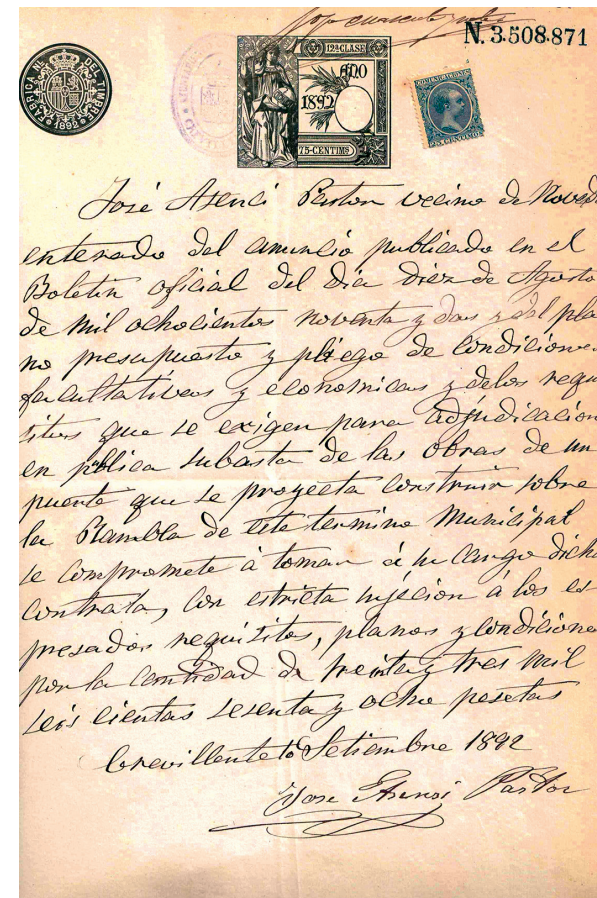 N. 3.508.871
FABRICA NL DEL TIMBRE
1892
12ª CLASE
AÑO
1892
75-CENTIMS
COMUNICACIONES
25 CENTIMOS
José Asenci Pastor vecino de Noveld
enterado del anuncio publicado en el
Boletin oficial del dia diez de Agosto
de mil ochocientos noventa y dos y del pla
no presupuesto y pliego de condiciones
facultativas y economicas y de los requi
sitos que se exigen para adjudicación
en publica subasta de las obras de un
puente que se proyecta construir sobre
la Rambla de este termino Municipal
se compromete á tomar á su cargo dicha
contrata, con estricta sujecion á los es
presados requisitos, planos y condiciones
por la cantidad de treinta y tres mil
seis cientas sesenta y ocho pesetas
Crevillente Setiembre 1892
Jose Asenci Pastor